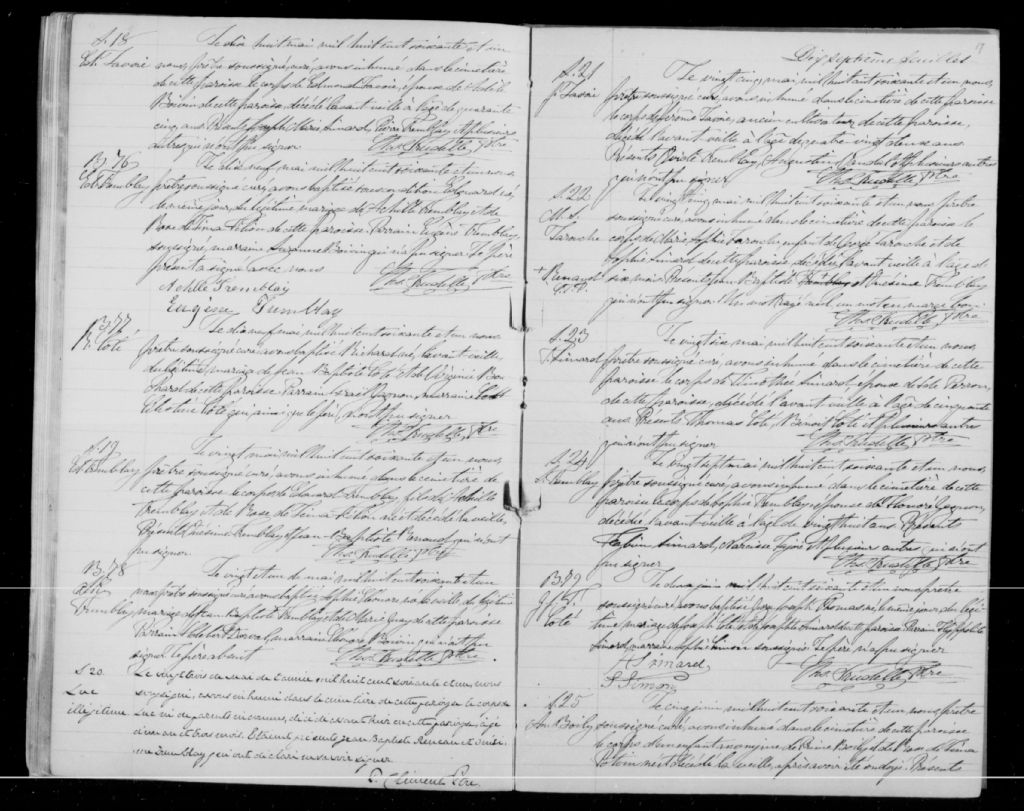 S. 18
Le dix huit mai mil huit cent soixante et un
nous, prêtre soussigné, curé, avons inhumé dans le cimetière
de cette paroisse le corps de Edmond Savoie, épouse de Achille
Boivin de cette paroisse, décédé l'avant veille à l'âge de quarante
cinq ans Présents Joseph Simard Pierre Tremblay & plusieurs
autres qui n'ont pu signer. Ths. Trudelle, Ptre
B. 76
Le dix neuf mai mil huit cent soixante et un nous
prêtre soussigné curé, avons baptisé sous condition Edouard né
le même jour, du légitime mariage de Achille Tremblay & de
Rose de Lima Fillion de cette paroisse. Parrain Eugène Tremblay,
soussigné, marraine Suzanne Boivin qui n'a pu signer. Le Père
présent a signé avec nous
Ths. Trudelle, Ptre
Achille Tremblay
Eugène Tremblay
B. 77
R. Coté
Le dix neuf mai mil huit cent soixante et un nous
prêtre soussigné curé avons baptisé Richard né l'avant veille
du légitime mariage de Jean Baptiste Coté & de Virginie
de cette paroisse. Parrain Israel Gagnon, Marraine
Coté qui, ainsi que le père, n'ont pu signer
Ths. Trudelle, Ptre
S. 19
Ed. Tremblay
Le vingt mai mil huit cent soixante et un nous,
prêtre soussigné curé, avons inhumé dans le cimetière de
cette paroisse le corps de Edouard Tremblay, fils de Achille
Tremblay & de Rose de Lima Fillion né et décédé la veille,
Présents Onésime Tremblay & Jean Baptiste Renaud qui n'ont
pu signer. Ths. Trudelle Ptre
B. 78
Tremblay
Le vingt et un de mai mil huit cent soixante et un
nous prêtre soussigné avons baptisé Sophie née la veille du légitime
mariage de Jean Baptiste Tremblay & de Marie de cette paroisse
Parrain marraine Boivin qui n'a pu
signer le père absent Ths. Trudelle Ptre
S 20
Luc
illégitime
Le vingt trois de mai de l'année mil huit cent soixante et un, nous
soussigné, avons inhumé dans le cimetière de cette paroisse le corps de
Luc né de parents inconnus, décédé avant hier en cette paroisse, âgé
d'un an et trois mois. Etaient présents Jean Baptiste Renaud et Onési-
me Tremblay qui ont déclaré ne savoir signer.
P. Clément Ptre
17
Dix septième feuillet
S. 21
J. Savoie
Le vingt cinq mai mil huit cent soixante et un nous,
prêtre soussigné curé, avons inhumé dans le cimetière de cette paroisse
le corps de Jérôme Savoie, ancien cultivateur de cette paroisse,
décédé l'avant veille à l'âge de quatre vingt deux ans
Présents Tremblay, Augustin & plusieurs autres
qui n'ont pu signer Ths. Trudelle Ptre
S. 22
M. S.
Larouche
Le vingt cinq mai mil huit cent soixante et un nous prêtre
soussigné curé, avons inhumé dans le cimetière de cette paroisse le
corps de Marie Sophie Larouche enfant de Larouche et de
Sophie Simard de cette paroisse décédée l'avant veille à l'âge de
+ Renaud
six mois Présents Jean Baptiste Tremblay + et Onésime Tremblay
qui n'ont pu signer. Un mot rayé nul un mot en marge bon.
Ths. Trudelle, Ptre
S. 23
T. Simard
Le vingt six mai mil huit cent soixante et un nous,
prêtre soussigné curé, avons inhumé dans le cimetière de cette
paroisse le corps de Timothée Simard époux de Perron,
de cette paroisse, décédé l'avant veille à l'âge de cinquante
ans Présents Thomas Coté, Benoni Coté et plusieurs autres
qui n'ont pu signer Ths. Trudelle Ptre
S. 24
S. Tremblay
Le vingt sept mai mil huit cent soixante et un nous,
prêtre soussigné curé, avons inhumé dans le cimetière de cette
paroisse le corps de Sophie Tremblay épouse de Honoré Gagnon,
décédée l'avant veille à l'âge de vingt huit ans Présents
Fabien Simard, Narcisse & plusieurs autres, qui n'ont
pu signer Ths. Trudelle Ptre
B. 79
Coté
Le deux juin mil huit cent soixante et un nous prêtre
soussigné curé avons baptisé Joseph Thomas né le même jour, du légi-
time mariage de Joseph Coté & de Sophie Simard de cette paroisse. Parrain Hyppolite
Simard, marraine Sophie Simon soussignés. Le père n'a pu signer
Ths. Trudelle, Ptre
H. Simard
S. Simon
S. 25
An. Boily
Le cinq juin mil huit cent soixante et un nous prêtre
soussigné curé, avons inhumé dans le cimetière de cette paroisse
le corps d'un enfant anonyme de Boily & de
Potvin né & décédé la veille, après avoir été ondoyé. Présents